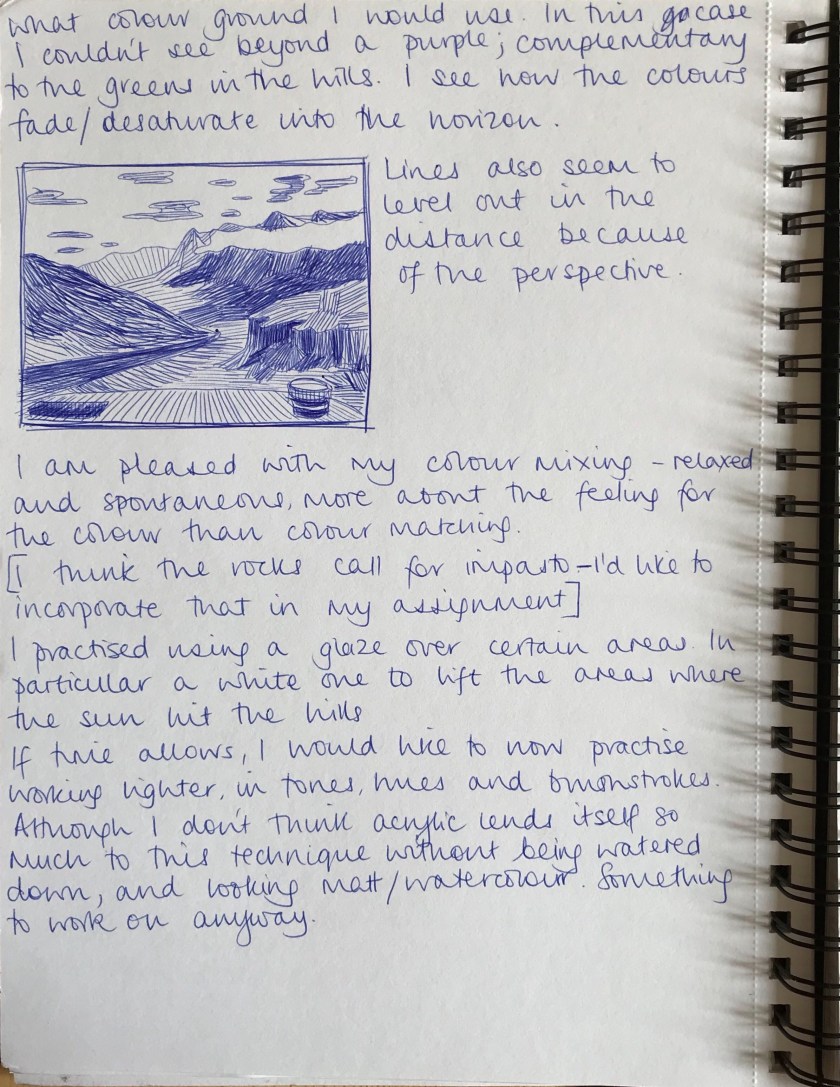 what colour ground I would use. In this case
I couldn't see beyond a purple; complementary
to the greens in the hills. I see how the colours
fade/desaturate into the horizon.
Lines also seem to
level out in the
distance because
of the perspective.
I am pleased with my colour mixing – relaxed
and spontaneous, more about the feeling for
the colour than colour matching.
[I think the rocks call for impasto – I'd like to
incorporate that in my assignment]
I practised using a glaze over certain areas. In
particular a white one to lift the areas where
the sun hit the hills
If time allows, I would like to now practise
working lighter, in tones, hues and brushstrokes.
Although I don't think acrylic lends itself so
much to this technique without being watered
down, and looking matt/watercolour. Something
to work on anyway.